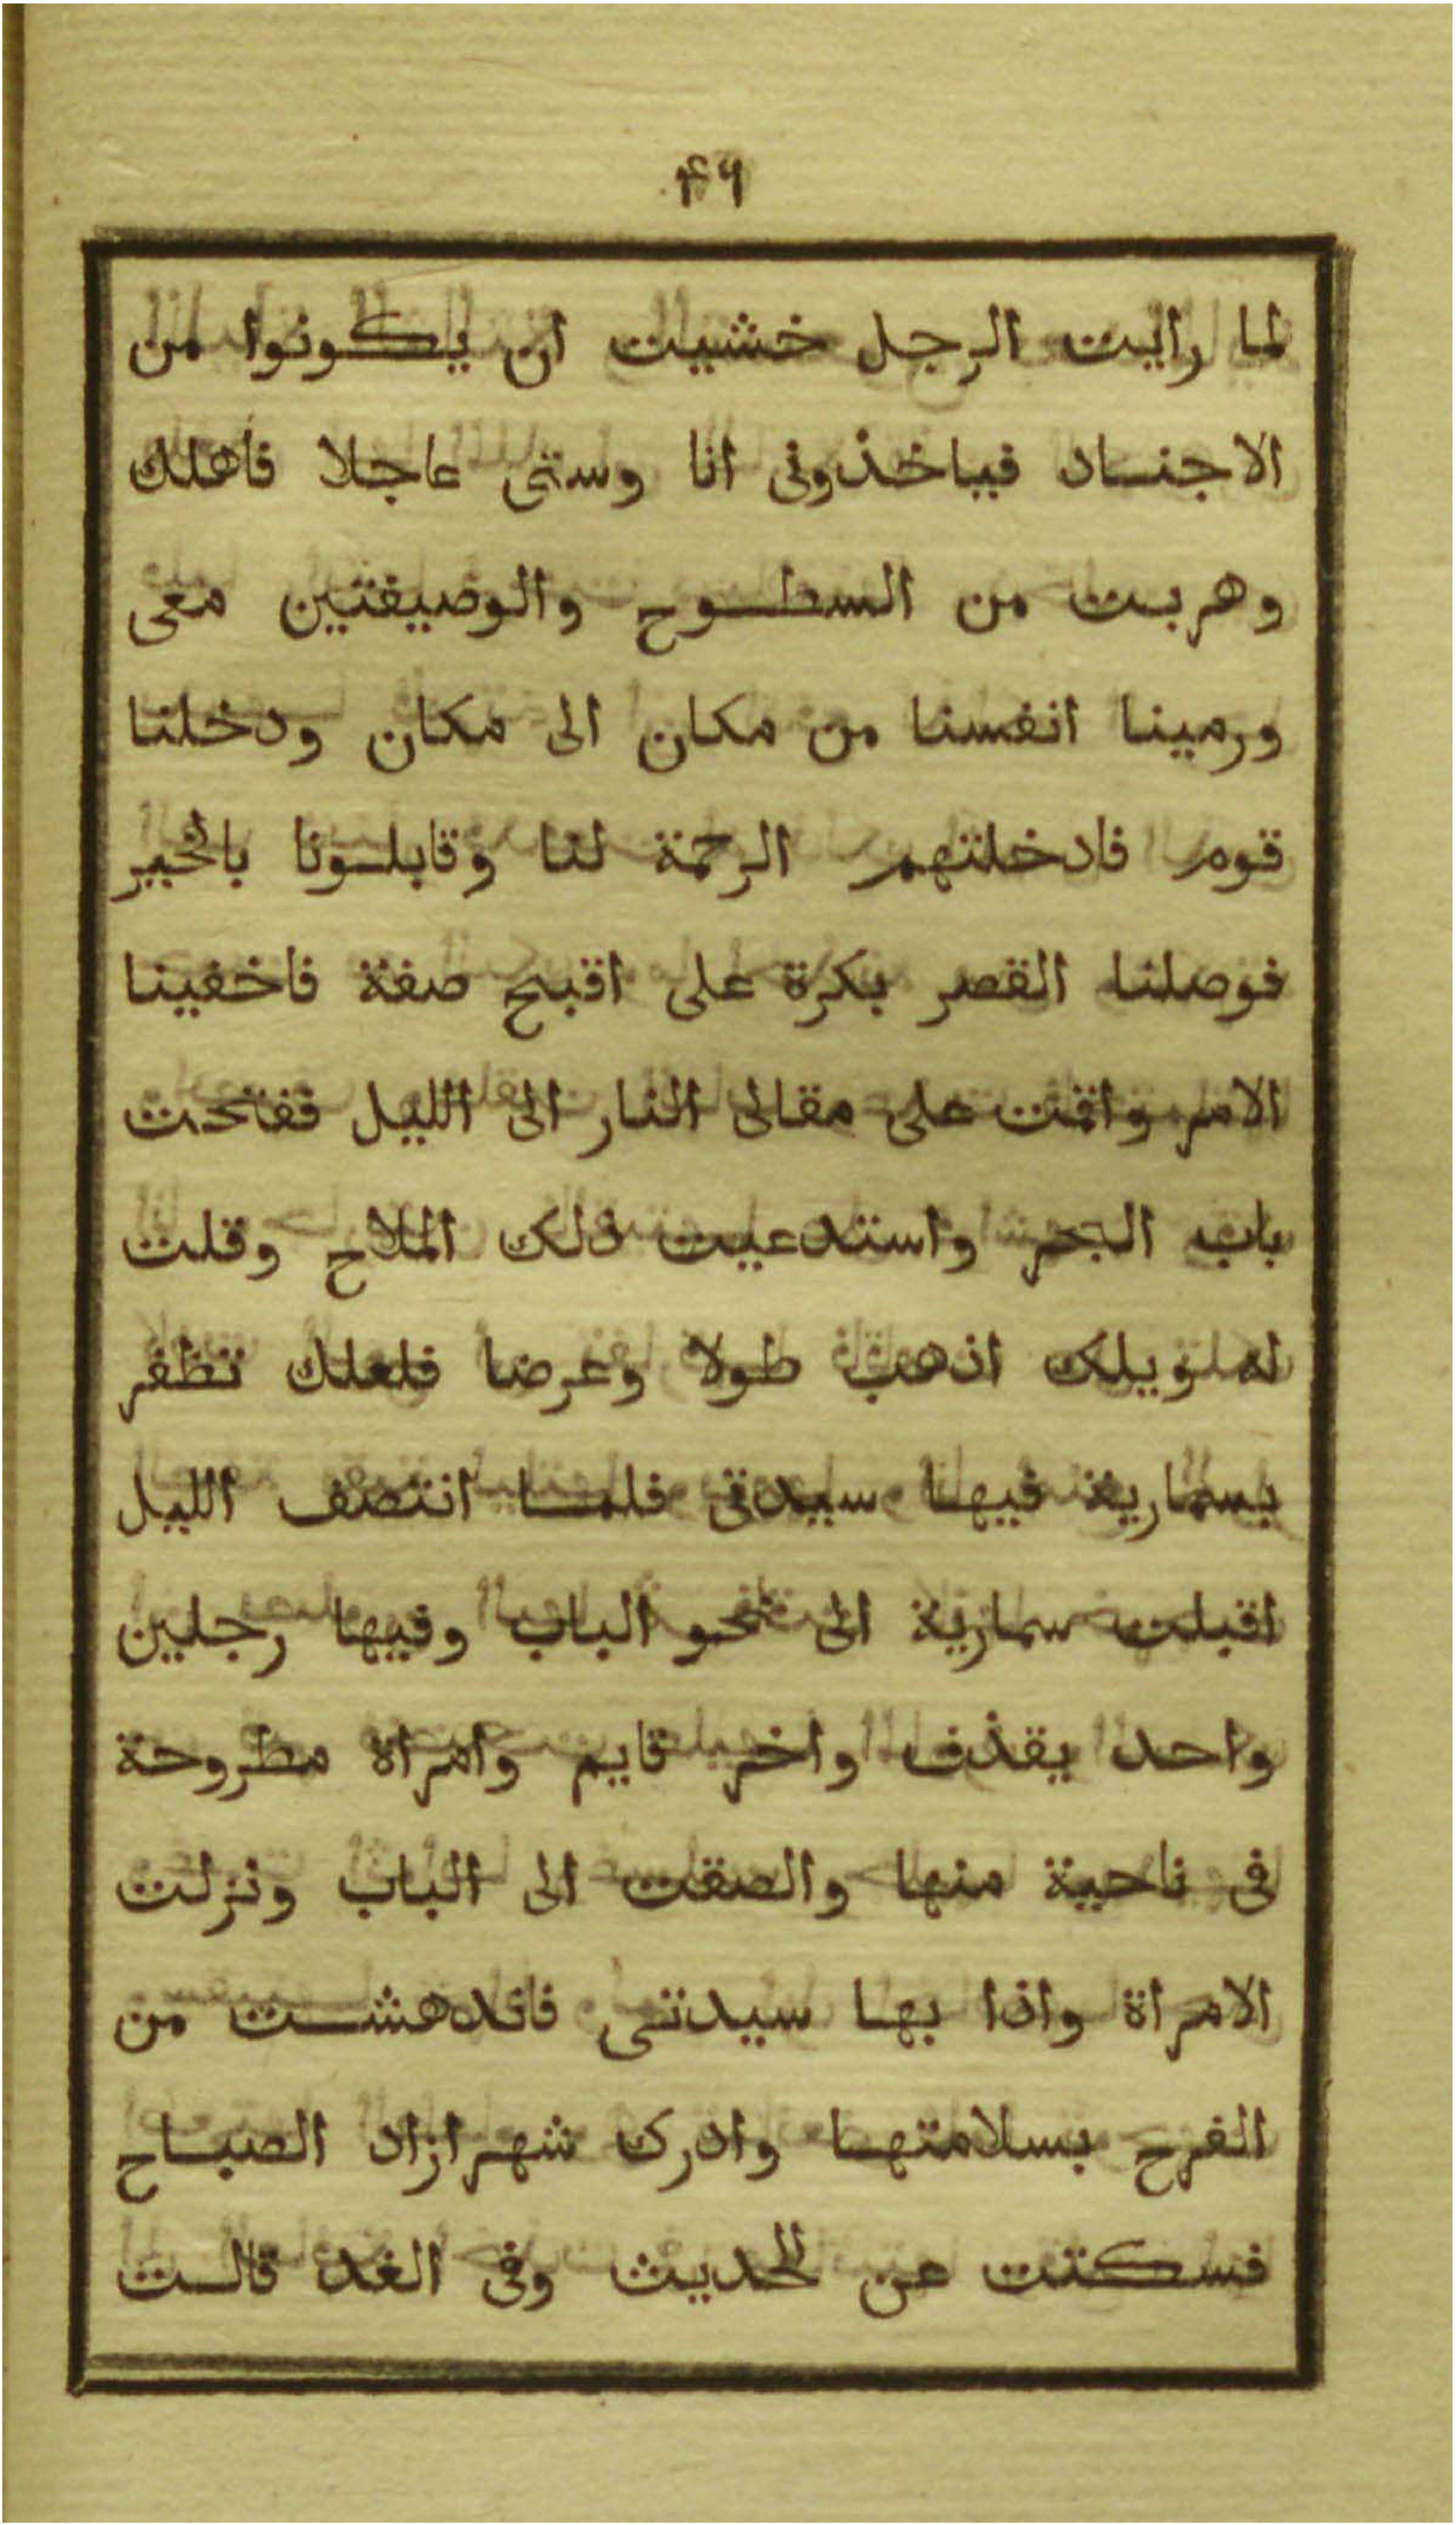 ۴۶
لما رايت الرجل خشيت ان يكونوا من
الاجناد فياخذونى انا وستى عاجلا فاهلك
وهربت من السطوح والوصيفتين معى
ورمينا انفسنا من مكان الى مكان ودخلنا
قوم فادخلتهم الرحمة لنا وقابلونا بالخير
فوصلنا القصر بكرة على اقبح صفة فاخفينا
الامر واقمت على مقالى النار الى الليل ففتحت
باب البحر واستدعيت ذلك الملاح وقلت
له ويلك اذهب طولا وعرضا فلعلك تظفر
بسمارية فيها سيدتى فلما انتصف الليل
اقبلت سمارية الى نحو الباب وفيها رجلين
واحد يقذف واخر قايم وامراة مطروحة
فى ناحية منها والصقت الى الباب ونزلت
الامراة واذا بها سيدتى فاندهشت من
الفرح بسلامتها وادرك شهرازاد الصباح
فسكتت عن الحديث وفى الغد قالت